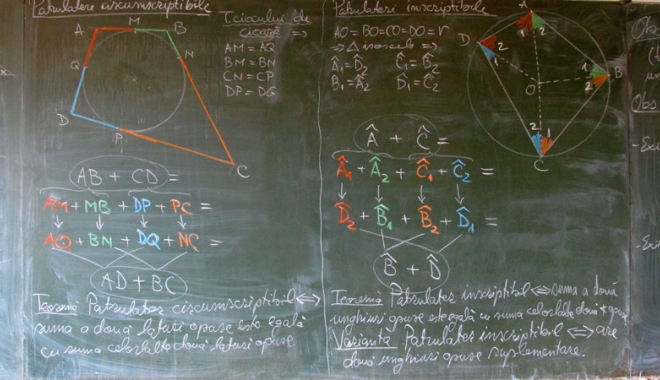 Patrulatere circumscriptibile
A
M
B
N
Q
D
P
C
Teoriema lui de
AM = AQ
BM = BN
CN = CP
DP = DQ
AB + CD =
AM + MB + DP + PC =
AQ + BN + DQ + NC =
AD + BC
Teoremă Patrulater circumscriptibil ⇔
suma a două laturi opuse este egală
cu suma celorlalte două laturi opuse.
Patrulatere inscriptibile
AO = BO = CO = DO = r
⇒ Δ isoscele ⇒
Â₁ = D̂₂ Ĉ₁ = B̂₂
B̂₁ = Â₂ D̂₁ = Ĉ₂
A
1 2
D
1
2
1
2
B
O
2 1
C
Â + Ĉ =
Â₁ + Â₂ + Ĉ₁ + Ĉ₂ =
D̂₂ + B̂₁ + B̂₂ + D̂₁ =
B̂ + D̂
Teorema Patrulater inscriptibil ⇔ suma a două
unghiuri opuse este egală cu suma celorlalte două opuse
Varianta Patrulater inscriptibil ⇔ are
două unghiuri opuse suplementare.
Obs